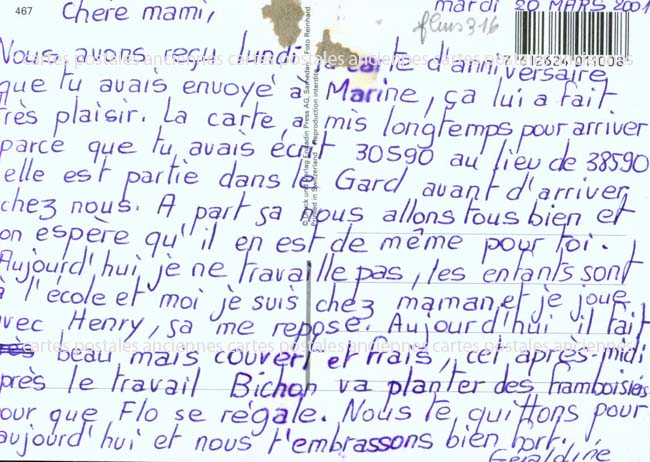 467
mardi 20 MARS 2001
Chère mami,
fleurs 316
Nous avons reçu lundi la carte d'anniversaire
7 612624 011008
cartes postales anciennes cartes postales anciennes cartes postales anciennes cartes postales anciennes
que tu avais envoyé à Marine, ça lui a fait
très plaisir. La carte, a mis longtemps pour arriver
parce que tu avais écrit 30590 au lieu de 38590
elle est partie dans le Gard avant d'arriver
chez nous. A part sa nous allons tous bien et
on espère qu'il en est de même pour toi.
Aujourd'hui, je ne travaille pas, les entants sont
à l'école et moi je suis chez maman et je joue
avec Henry, sa me repose. Aujourd'hui il fait
très beau mais couvert et frais, cet après-midi
cartes postales anciennes cartes postales anciennes cartes postales anciennes cartes postales anciennes
après le travail Bichon va planter des framboisiers
pour que Flo se régale. Nous te quittons pour
aujourd'hui et nous t'embrassons bien fort.
Géraldine
© Druck und Verlag Engadin Press AG, Samedan Foto Reinhard
Printed in Switzerland Reproduction interdite